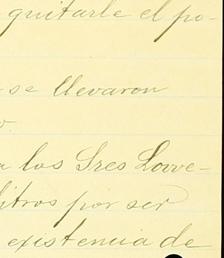 quitarle el po-
se llevaron
los Sres Love-
litros por ser
existencia de